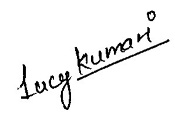 Lucy Kumari